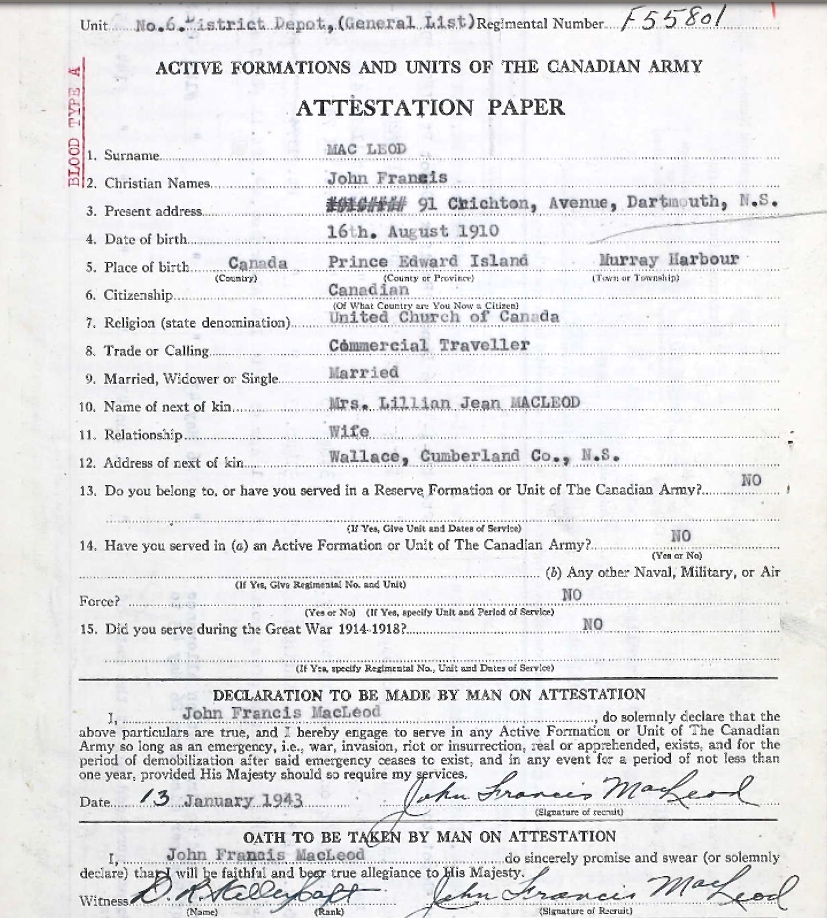 Unit No.6. District Depot,(General List) Regimental Number F55801
BLOOD TYPE A
ACTIVE FORMATIONS AND UNITS OF THE CANADIAN ARMY
ATTESTATION PAPER
1. Surname MAC LEOD
2. Christian Names John Francis
3. Present address 91 Chichton, Avenue, Dartmouth, N.S.
4. Date of birth 16th. August 1910
5. Place of birth Canada Prince Edward Island Murray Harbour
(Country) (County or Province) (Town or Township)
6. Citizenship Canadian
(Of What Country are You Now a Citizen)
7. Religion (state denomination) United Church of Canada
8. Trade or Calling Commercial Traveller
9. Married, Widower or Single Married
10. Name of next of kin Mrs. Lillian Jean MACLEOD
11. Relationship Wife
12. Address of next of kin Wallace, Cumberland Co., N.S.
13. Do you belong to, or have you served in a Reserve Formation or Unit of The Canadian Army? NO
(If Yes, Give Unit and Dates of Service)
14. Have you served in (a) an Active Formation or Unit of The Canadian Army? NO
(Yes or No)
(b) Any other Naval, Military, or Air
(If Yes, Give Regimental No. and Unit)
Force? NO
(Yes or No) (If Yes, specify Unit and Period of Service)
15. Did you serve during the Great War 1914-1918? NO
(If Yes, specify Regimental No., Unit and Dates of Service)
DECLARATION TO BE MADE BY MAN ON ATTESTATION
I, John Francis MacLeod, do solemnly declare that the
above particulars are true, and I hereby engage to serve in any Active Formation or Unit of The Canadian
Army so long as an emergency, i.e., war, invasion, riot or insurrection, real or apprehended, exists, and for the
period of demobilization after said emergency ceases to exist, and in any event for a period of not less than
one year, provided His Majesty should so require my services.
Date 13 January 1943 John Francis MacLeod
(Signature of recruit)
OATH TO BE TAKEN BY MAN ON ATTESTATION
I, John Francis MacLeod do sincerely promise and swear (or solemnly
declare) that I will be faithful and bear true allegiance to His Majesty.
Witness Capt John Francis MacLeod
(Name) (Rank) (Signature of Recruit)